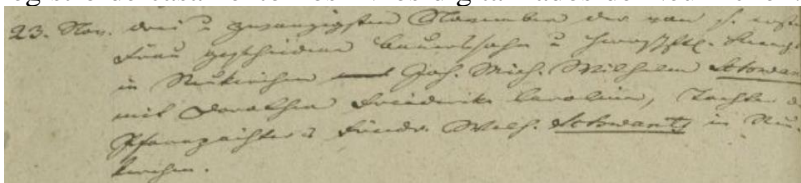 23. Nov. drei u zwanzigsten November der von s. ersten
Frau geschiedene Bauerssohn u
in Neukirchen Joh. Mich. Wilhelm Schwan
mit Dorothea Friederike Caroline, Tochter d
Pfarrpächters Friedr. Wilh. Schwartz in Neu-
kirchen.